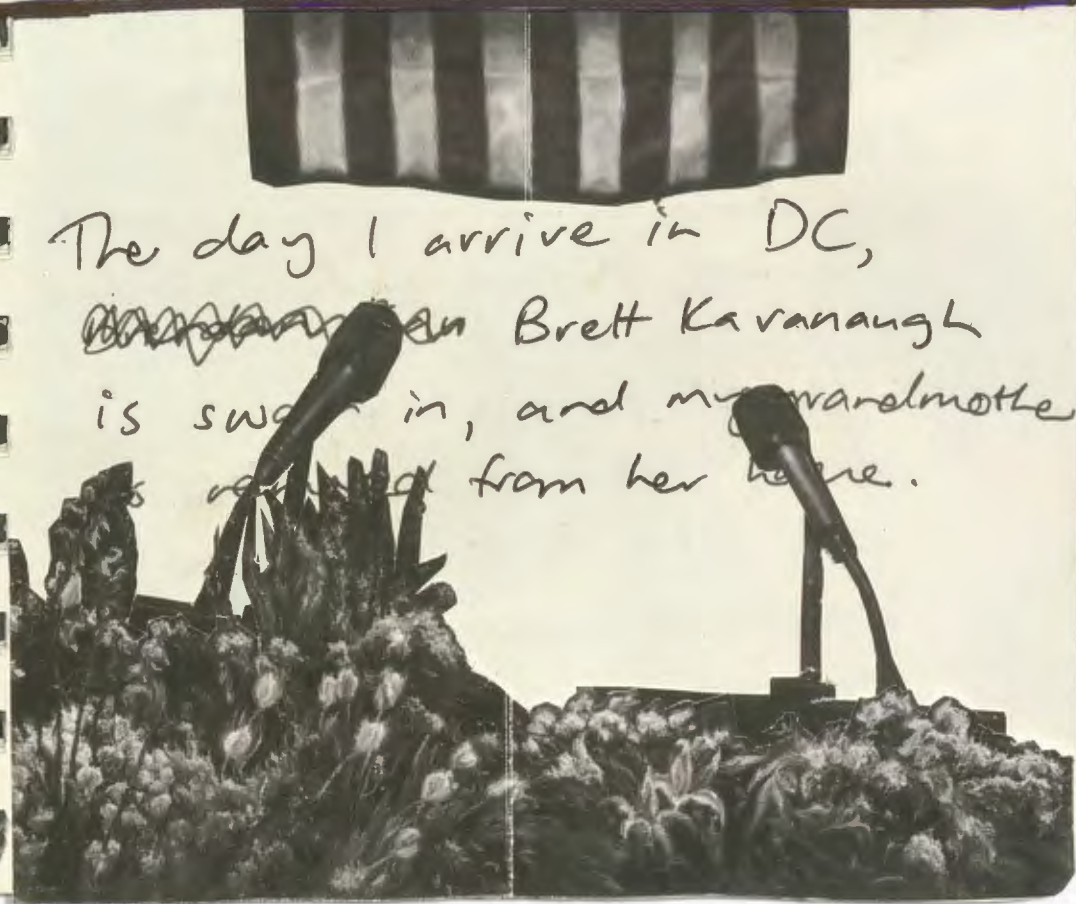 The day I arrive in DC,
Brett Kavanaugh
is sworn in, and my grandmothe
is removed from her home.